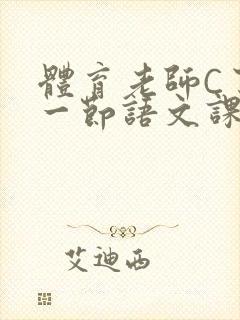 體育老師C
一節語文課
艾迪西